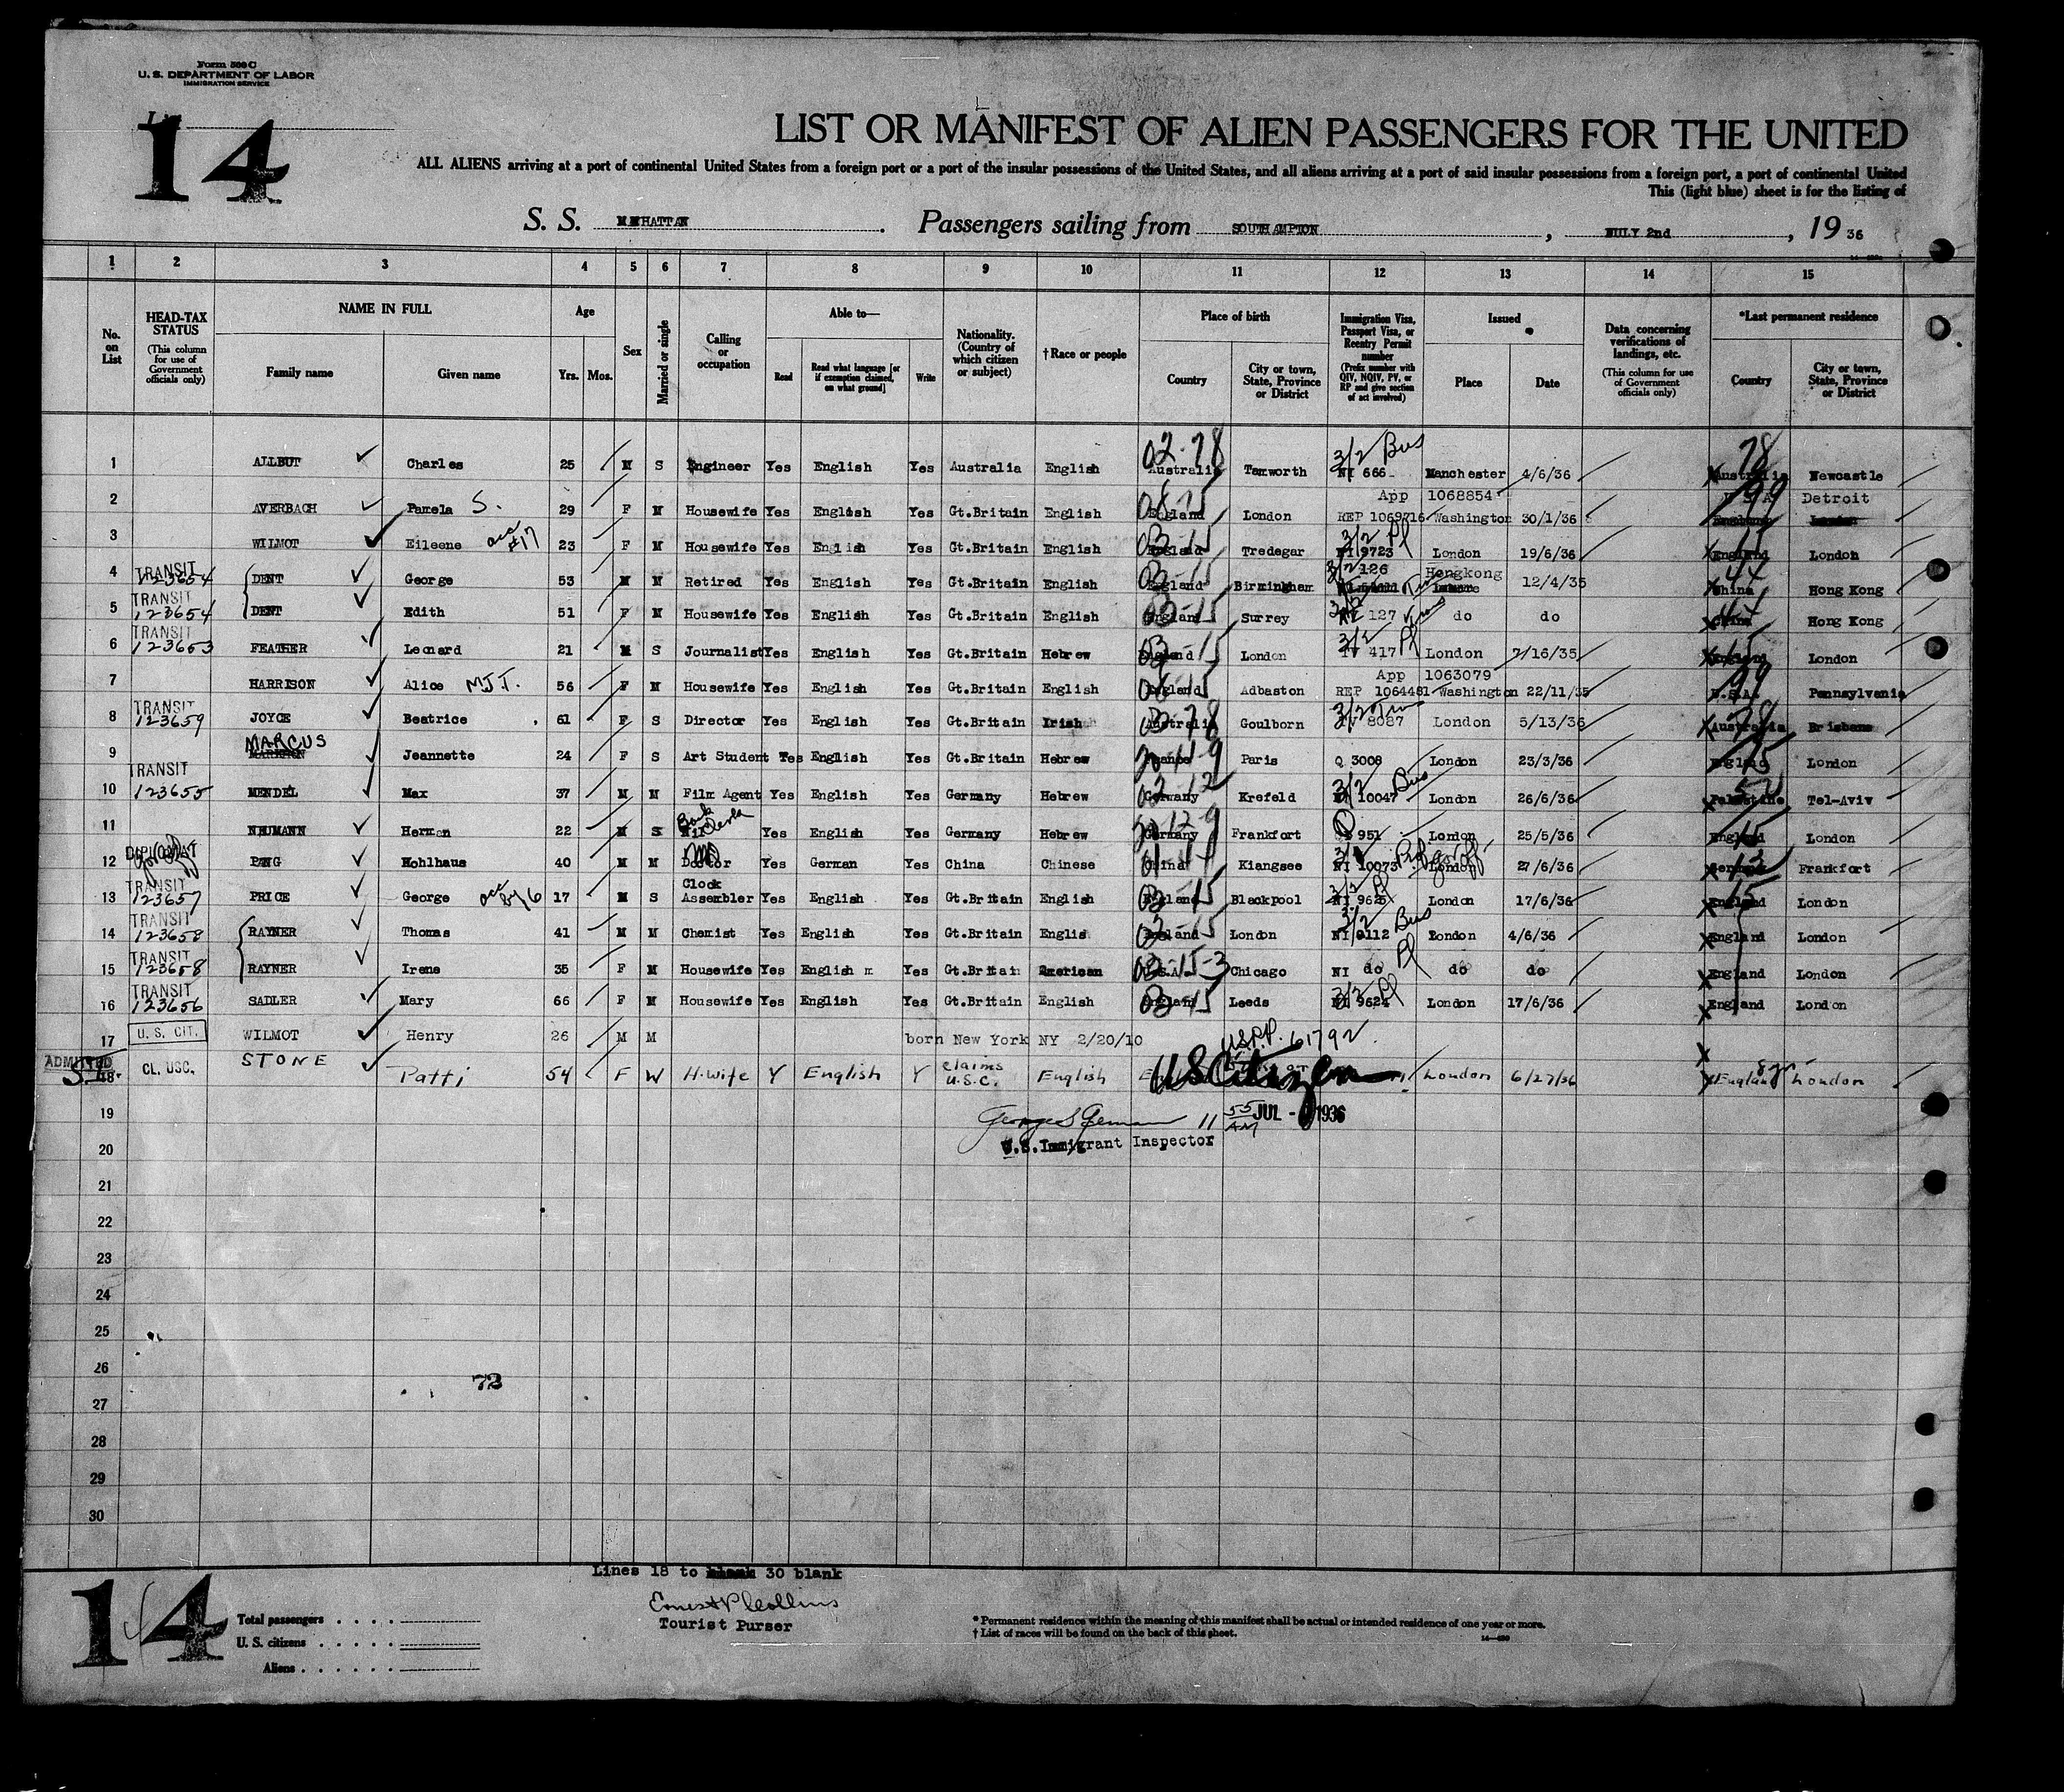 Form 500 C
U. S. DEPARTMENT OF LABOR
IMMIGRATION SERVICE
14
LIST OR MANIFEST OF ALIEN PASSENGERS FOR THE UNITED
ALL ALIENS arriving at a port of continental United States from a foreign port or a port of the insular possessions of the United States, and all aliens arriving at a port of said insular possessions from a foreign port, a port of continental United
This (light blue) sheet is for the listing of
S. S. MANHATTAN . Passengers sailing from SOUTHAMPTON , JULY 2nd , 19 36
1 2 3 4 5 6 7 8 9 10 11 12 13 14 15
No. on List
HEAD-TAX STATUS (This column for use of Government officials only)
NAME IN FULL Family name Given name
Age Yrs. Mos.
Sex
Married or single
Calling or occupation
Able to— Read Read what language [or if exemption claimed, on what ground] Write
Nationality. (Country of which citizen or subject)
†Race or people
Place of birth Country City or town, State, Province or District
Immigration Visa, Passport Visa, or Reentry Permit number (Prefix number with QIV, NQIV, PV, or RP and give section of act involved)
Issued Place Date
Data concerning verifications of landings, etc. (This column for use of Government officials only)
*Last permanent residence Country City or town, State, Province or District
1 ALLBUT Charles 25 M S Engineer Yes English Yes Australia English 02-78 Australia Tamworth 3/2 Bus NI 666 Manchester 4/6/36 78 Australia Newcastle
App 1068854 U.S.A. Detroit
2 AVERBACH Pamela S. 29 F M Housewife Yes English Yes Gt.Britain English England London REP 1069716 Washington 30/1/36 99 England London
3 WILMOT Eileene acc #17 23 F M Housewife Yes English Yes Gt.Britain English 03-15 England Tredegar 3/2 Pl NI 9723 London 19/6/36 15 England London
4 TRANSIT 123654 DENT George 53 M M Retired Yes English Yes Gt.Britain English 03-15 England Birmingham 3/2 126 Hongkong 12/4/35 44 China Hong Kong
5 TRANSIT 123654 DENT Edith 51 F M Housewife Yes English Yes Gt.Britain English 03-15 England Surrey 127 do do 44 China Hong Kong
6 TRANSIT 123653 FEATHER Leonard 21 M S Journalist Yes English Yes Gt.Britain Hebrew 03-15 England London 3/2 Pl 417 London 7/16/35 15 England London
App 1063079
7 HARRISON Alice M.J.T. 56 F M Housewife Yes English Yes Gt.Britain English England Adbaston REP 1064481 Washington 22/11/35 99 U.S.A. Pennsylvania
8 TRANSIT 123659 JOYCE Beatrice 61 F S Director Yes English Yes Gt.Britain Irish 03-78 Australia Goulborn 3/2 8087 London 5/13/36 78 Australia Brisbane
9 MARCUS Jeannette 24 F S Art Student Yes English Yes Gt.Britain Hebrew France Paris Q 3008 London 23/3/36 15 England London
10 TRANSIT 123655 MENDEL Max 37 M M Film Agent Yes English Yes Germany Hebrew Germany Krefeld 3/2 Bus 10047 London 26/6/36 Palestine Tel-Aviv
11 NEUMANN Herman 22 M S Yes English Yes Germany Hebrew Germany Frankfort 951 London 25/5/36 15 England London
12 DIPLOMAT PANG Hohlhaus 40 M M Doctor Yes German Yes China Chinese China Kiangsee NI 10073 London 27/6/36 Germany Frankfort
13 TRANSIT 123657 PRICE George acc by 6 17 M S Clock Assembler Yes English Yes Gt.Britain English 03-15 England Blackpool 3/2 Pl NI 9625 London 17/6/36 15 England London
14 TRANSIT 123658 RAYNER Thomas 41 M M Chemist Yes English Yes Gt.Britain Englis 03-15 England London 3/2 Bus NI 9112 London 4/6/36 England London
15 TRANSIT 123658 RAYNER Irene 35 F M Housewife Yes English Yes Gt.Britain American 03-15-3 U.S.A. Chicago NI do Pl do do England London
16 TRANSIT 123656 SADLER Mary 66 F M Housewife Yes English Yes Gt.Britain English 03-15 England Leeds 3/2 Pl NI 9624 London 17/6/36 England London
17 U. S. CIT. WILMOT Henry 26 M M born New York NY 2/20/10 U.S.P.P. 61792
ADMITTED S.I. 18 CL. USC. STONE Patti 54 F W H.Wife Y English Y claims U.S.C. English US Citizen London 6/27/36 England London
19 11 55 AM JUL - 1936
U.S. Immigrant Inspector
20
21
22
23
24
25
26
72
27
28
29
30
Lines 18 to 30 blank
14
Ernest P Collins
Tourist Purser
Total passengers . . . .
U. S. citizens . . . . .
Aliens . . . . . .
* Permanent residence within the meaning of this manifest shall be actual or intended residence of one year or more.
† List of races will be found on the back of this sheet.